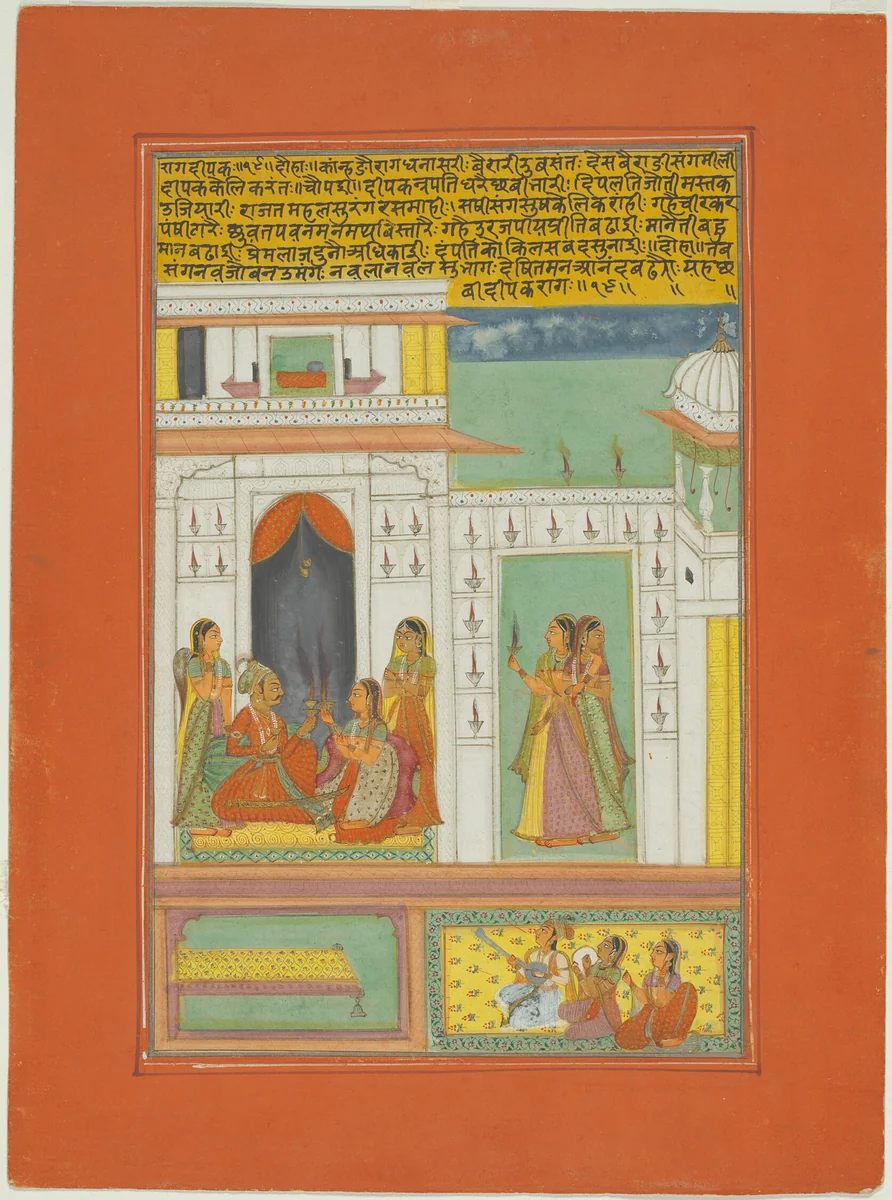 रागदीपक॥१९॥दोहा॥कांन्हडौरागधनासरीः बैरारीरुबसंतः देसबैराडीसंगमीली
दीपककेलिकरंतः॥चौपई॥दीपकनृपतिधरैछबीनारीः दिपलतिजोतीमस्तक
उजियारीः राजतमहलसुरंगरसमाहीः सषीसंगसुषकेलिकराहीः गहैचीरकर
मानैतीबहु
मानबढाईः प्रेमलाजदुनौअधिकाईः दंपतिकोकिलसबदसुनाई॥दोहा॥तब
संगनवजोबनउमंगः नवलानवलसुभागः देषितमनआनंदबढ्यौः यहछ
बीदीपकरागः॥१९॥ ॥ ॥